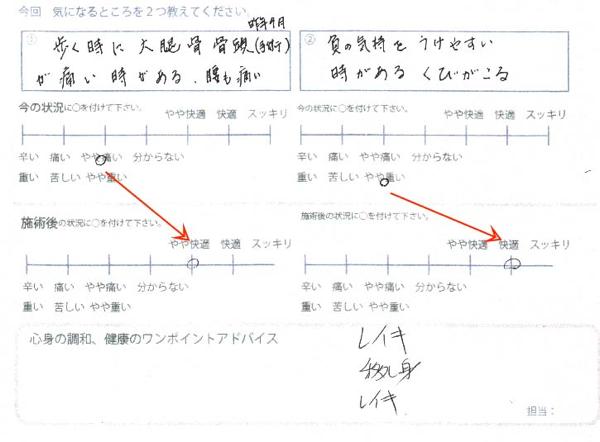 今回 気になるところを2つ教えてください。
昨年9月
① 歩く時に大腿骨骨頭(手術)
が痛い時がある、腰も痛い
② 負の気持をうけやすい
時がある くびがこる
今の状況に○を付けて下さい。
やや快適 快適 スッキリ
辛い 痛い やや痛い 分からない
重い 苦しい やや重い
今の状況に○を付けて下さい。
やや快適 快適 スッキリ
辛い 痛い やや痛い 分からない
重い 苦しい やや重い
施術後の状況に○を付けて下さい。
やや快適 快適 スッキリ
辛い 痛い やや痛い 分からない
重い 苦しい やや重い
施術後の状況に○を付けて下さい。
やや快適 快適 スッキリ
辛い 痛い やや痛い 分からない
重い 苦しい やや重い
心身の調和、健康のワンポイントアドバイス
レイキ
レイキ
担当: